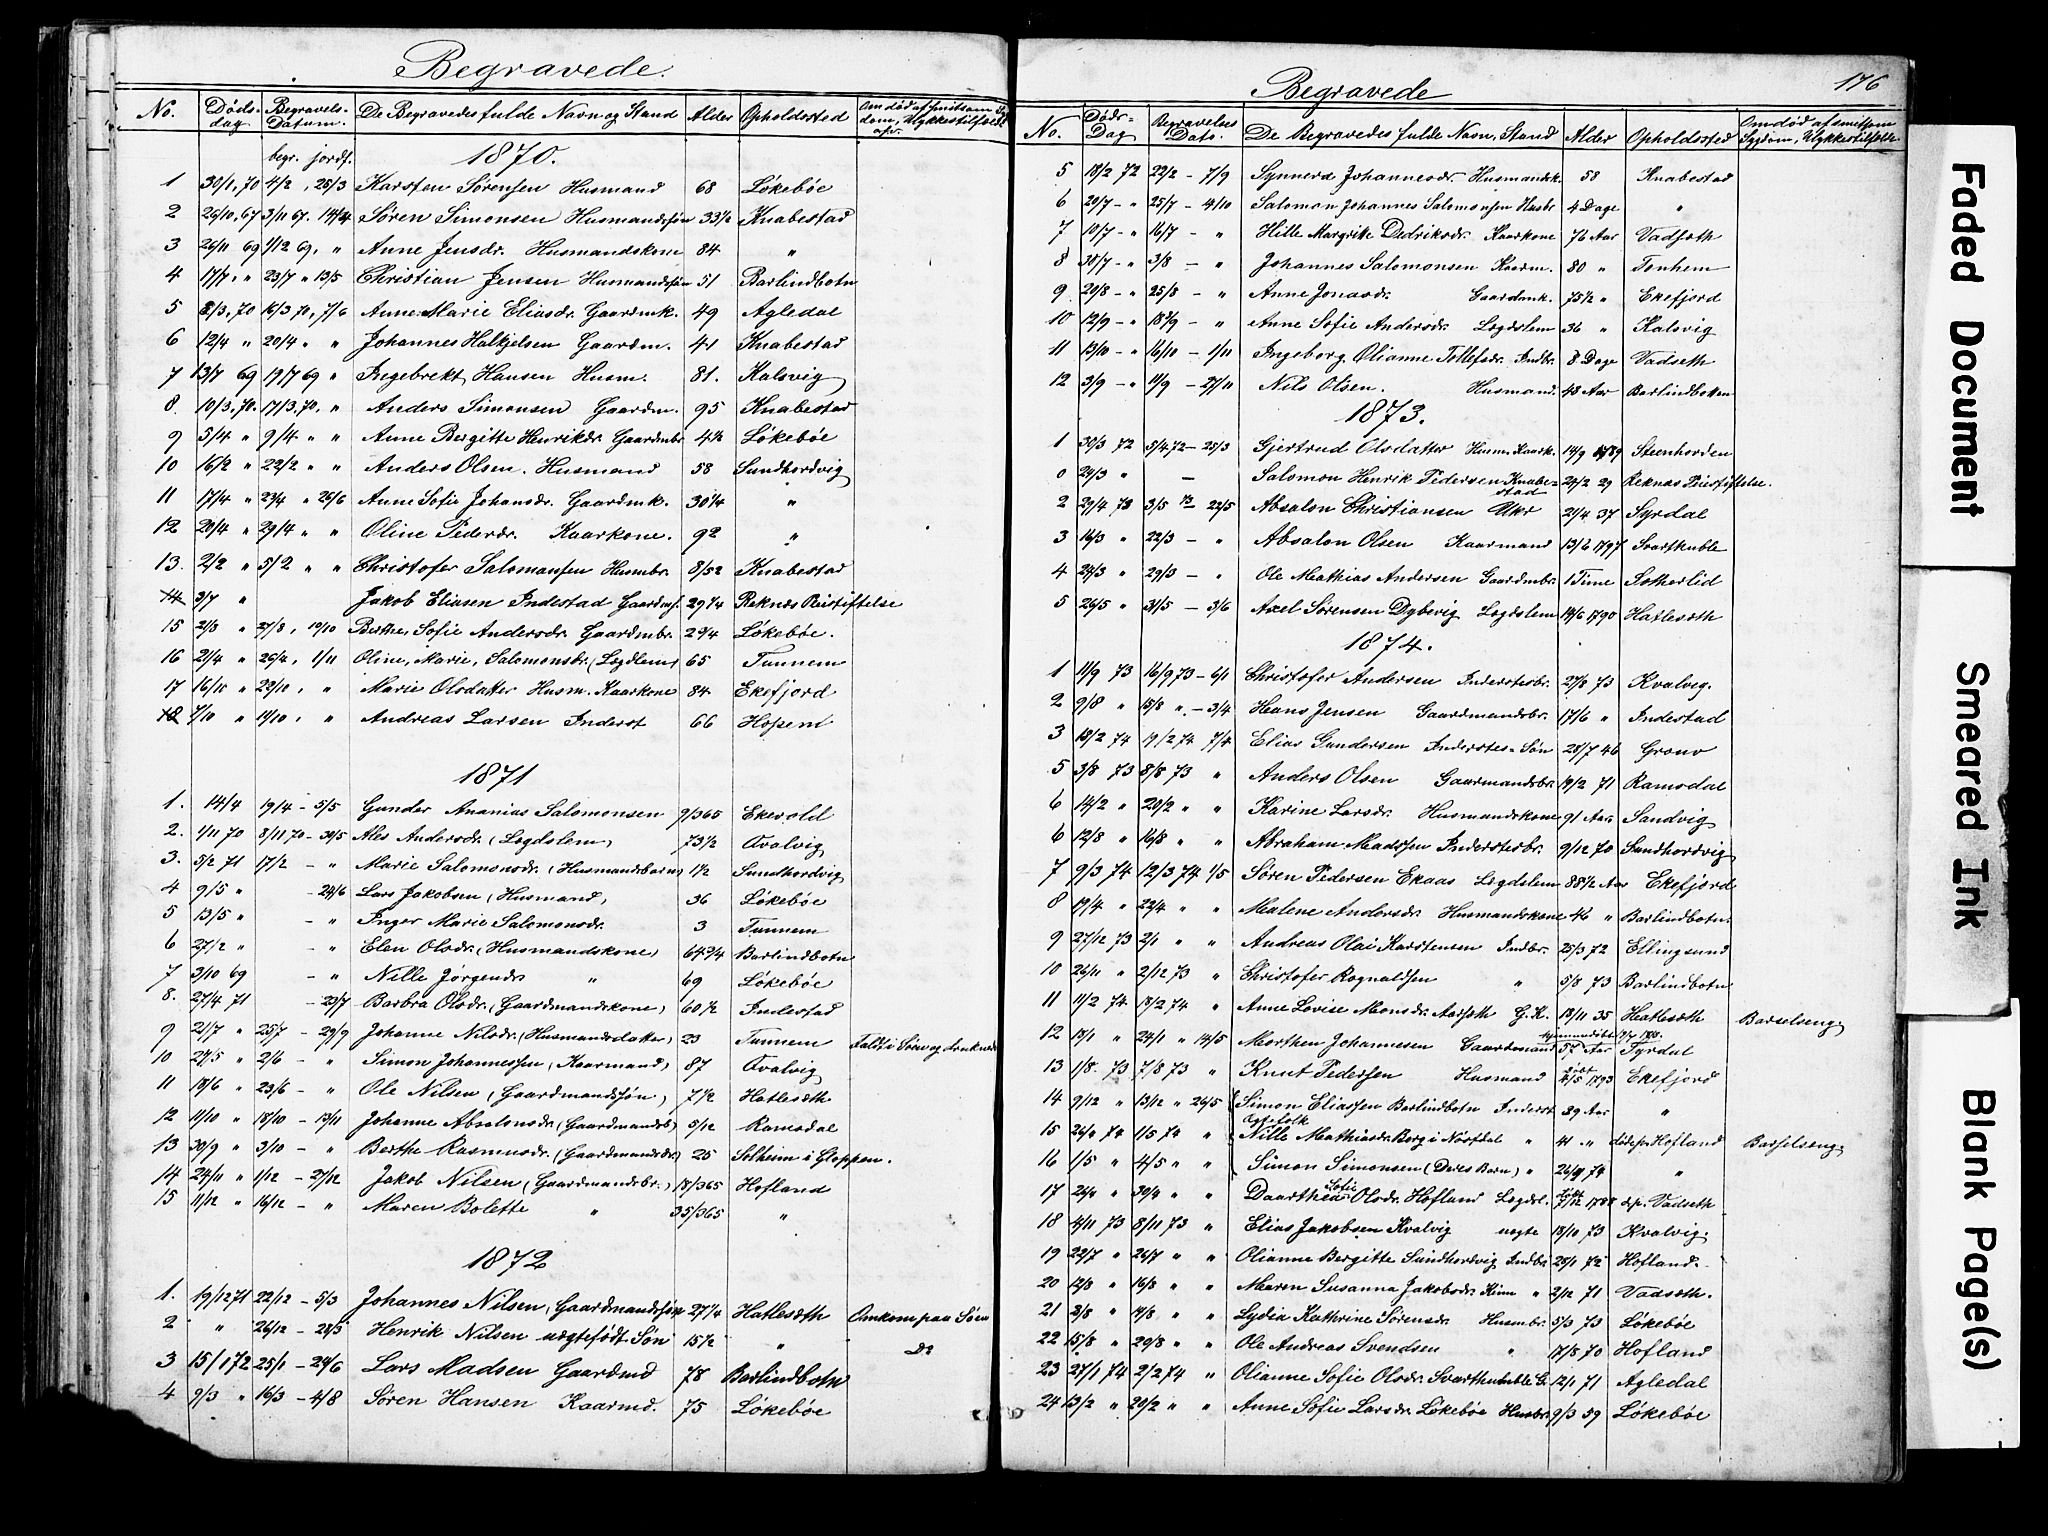 Begravede.
No. Døds-dag Begravels-Datum. De Begravedes fulde Navn og Stand Alder Opholdssted Om død af smitsom Sygdom, Ulykkestilfælde
begr. jordf. 1870.
1 30/1, 70 4/2, 25/3 Karsten Sørensen Husmand 68 Løkebøe
2 26/10, 67 3/11 67. Søren Simonsen Husmandssøn 33½ Knabestad
3 26/11 69 1/12 69, " Anne Jensdr. Husmandskone 84 "
4 17/7, " 23/7 " 13/5 Christian Jensen Husmandssøn 51 Barlindbotn
5 8/3, 70 16/3 70, 7/6 Anne Marie Eliasdr. Gaardmk. 49 Agledal
6 12/4 " 20/4 " " Johannes Halkjelsen Gaardm. 41 Knabestad
7 13/7 69 19/7 69 " Ingebrekt Hansen Husm. 81. Kalsvig
8. 10/3, 70. 17/3, 70, " Anders Simonsen Gaardm. 95 Knabestad
9 5/4 " 9/4 " " Anne Bergitte Henrikdr. Gaardmbr. 4½ Løkebøe
10 16/2 " 22/2 " " Anders Olsen. Husmand 58 Sundhordvig
11 17/4 " 23/4 " 26/6 Anne Sofie Johansdr. Gaardmk. 30¼ "
12 20/4 " 29/4 " " Oline Pedersdr. Kaarkone. 92 "
13. 2/2 " 5/2 " " Christofer Salomansen Husmbr. 8/52 Knabestad
14 3/7 " Jakob Eliasen Indestad Gaardms. 29¼ Reknæs Pleistiftelse
15 21/8 " 27/8, 19/10 Berthe, Sofie Andersdr. Gaardmbr. 2¾ Løkebøe.
16 21/4 " 26/4, 1/11 Oline, Marie, Salomonsdr. (Lægdslem) 65 Tunnem
17 16/10 " 22/10, " Marie Olsdatter Husm. Kaarkone 84 Ekefjord
18 7/10 " 14/10, " Andreas Larsen Inderst 66 Hopem
1871
1. 14/4 19/4 - 5/5 Gunder Ananias Salomonsen 9/365 Ekevold
2. 1/11 70 8/11 70 - 30/5 Ales Andersdr. (Lægdslem) 73½ Qvalvig
3. 5/2 71 17/2 - " Marie Salomonsdr. (Husmandsbarn) 1½ Sundhordvig
4 9/5 " - 24/6 Lars Jakobsen (Husmand) 36 Løkebøe
5 13/5 " - " Inger Marie Salomonsdr. 3 Tunnem
6 27/2 " - " Elen Olsdr. (Husmandskone) 64¾ Barlindbotn
7 3/10 69 - " Nille Jørgensdr. " 69 Løkebøe
8. 27/4 71 - 23/7 Barbra Olsdr. (Gaardmandskone) 60½ Indestad
9 21/7 " 25/7 - 29/9 Johanne Nilsdr. (Husmandsdatter) 23 Tunnem Faldt i Søen og druknede
10 27/5 " 2/6 - " Simon Johannessen (Kaarmand) 87 Qvalvig
11 18/6 " 23/6 - " Ole Nilsen (Gaardmandssøn) 7½ Hatlesæth
12 11/10 " 18/10 - 13/11 Johanne Absalonsdr. (Gaardmandsb) 5/12 Ramsdal
13 30/9 " 3/10 - " Berthe Rasmusdr. (Gaardmandsdr.) 25 Solheim i Gloppen.
14 24/11 " 1/12 - 27/12 Jakob Nilsen (Gaardmandsbr.) 18/365 Hofland
15 11/12 " 16/12 - " Maren Bolette " 35/365 "
1872
1. 19/12 71 22/12 - 5/3 Johannes Nilsen, Gaardmandssøn 27¼ Hatlesæth Omkom paa Søen
2 " 26/12 - 28/3 Henrik Nilsen uægtefødt Søn 15½ " Do
3 15/1 72 25/1 - 24/6 Lars Madsen Gaardmd 78 Barlindbotn
4 9/3 " 16/3 - 4/8 Søren Hansen Kaarmd. 75 Løkebøe
Begravede 176
No. Døds-Dag Begravelses Dato. De Begravedes fulde Navn, Stand Alder Opholdssted Om død af smitsom Sygdom, Ulykkestilfælde
5 18/2 72 22/2 - 7/9 Synnerd Johannesdr. Husmandsk. 58 Knabestad
6 20/7 - " 25/7 - 4/10 Salomon Johannes Salomonsen Husbr 4 Dage "
7 10/7 - " 16/7 - " Hille Margrite Dedriksdr. Kaarkone 76 Aar Vadsæth
8 30/7 - " 3/8 - " Johannes Salomonsen Kaarm. 80 " Tonhem
9 20/8 - " 25/8 - " Anne Jonasdr. Gaardmk. 75½ " Ekefjord
10 12/9 - " 18/9 - " Anne Sofie Andersdr. Lægdslem 36 " Kalsvig
11 13/10 - " 16/10 - 1/11 Ingeborg Olianne Tollefsdr. Indbr. 8 Dage Vadseth
12 3/9 - " 11/9 - 27/11 Nils Olsen. Husmand. 48 Aar Barlindbotten
1873.
1 30/3 72 5/4 72 - 25/3 Gjertrud Olsdatter Husm. Kaark. 14/9 1789 Steenhorden
0 24/3 " - Salomon Henrik Pedersen Knabe-stad 24/2 29 Reknæs Pleistiftelse.
2 29/4 73 3/5 73 22/5 Absalon Christiansen Ukr 21/4 37 Syrdal
3 16/3 " 22/3 - " Absalon Olsen Kaarmand 13/6 1797 Svartkuble
4 24/3 " 29/3 - " Ole Mathias Andersen Gaardmbr. 1 Time Satterlid
5 26/5 " 31/5 - 3/6 Axel Sørensen Dybevig Lægdslem 14/6 1790 Hatlesæth
1874.
1 11/9 73 16/9 73 - 6/1 Christofer Andersen Inderstesbr. 27/8 73 Kvalvig.
2 9/8 " 15/8 ". - 3/4 Hans Jensen Gaardmandsbr. 17/6 " Indestad
3 13/2 74 19/2 74 7/4 Elias Gundersen Inderstes-Søn 28/7 46 Grouv
5 3/8 73 8/8 73 " Anders Olsen Gaarmandsbr. 19/2 71 Ramsdal
6 14/2 " 20/2 " " Karine Larsdr. Husmandskone 91 Aar Sandvig
6 12/8 " 16/8 " " Abraham Madssen Inderstesbr. 9/12 70 Sundhordvig
7 9/3 74 12/3 74 1/5 Søren Pedersen Ekaas Legdslem 88½ Aar Ekefjord
8 17/4 " 22/4 " " Malene Andersdr. Husmandskone 46 " Barlindbotn.
9 27/12 73 2/1 " " Andreas Olai Karstensen Indbr. 25/3 72 Ellingsund
10 26/11 " 2/12 73 " Christofer Rognaldsen " 5/8 73 Barlindbotn
11 11/2 74 18/2 74 " Anne Lovise Monsdr. Aarsæth G.K. 19/11 35 Hatlesæth Barselseng
12 18/1 " 24/1 " 14/5 Morthen Johannesen Gaardmand 57 Aar Syrdal
13 1/8 73 7/8 73 " Knut Pedersen Husmand født 4/5 1793 Ekefjord
14 9/12 " 13/12 " 26/5 Simon Eliassen Barlindbotn Inderst 39 Aar "
Egtefolk
15 26/4 74 1/5 74 " Nille Mathiasdr. Berg i Norddal " 41 " døde pr Hofland Barselseng
16 1/5 " 4/5 " " Simon Simonsen (Deres Barn) " 74 "
17 26/4 " 30/4 " " Daarthea Sofie Olsdr. Hofland Lægdsl. født 7/12 1788 d.p. Vadseth
18 4/11 73 8/11 73 " Elias Jakobsen Kvalvig uegte 18/10 73 Kvalvig.
19 22/7 " 26/7 " " Olianne Bergitte Sundhordvig Indbr 25/1 72 Hofland.
20 12/8 " 16/8 " " Maren Susanna Jakobsdr. " 2/12 71 Vadsæth.
21 3/8 " 14/8 " " Lydia Kathrine Sørensdr. Husmbr. 5/3 73 Løkebøe
22 15/8 " 20/8 " " Ole Andreas Svendsen " 17/8 70 Hofland
23 27/1 74 2/2 74 " Olianne Sofie Olsdr. Svartkuble G. 12/1 71 Agledal
24 13/2 " 20/2 " " Anne Sofie Larsdr. Løkebøe Husbr. 9/3 59 Løkebøe
Faded Document
Smeared Ink
Blank Page(s)